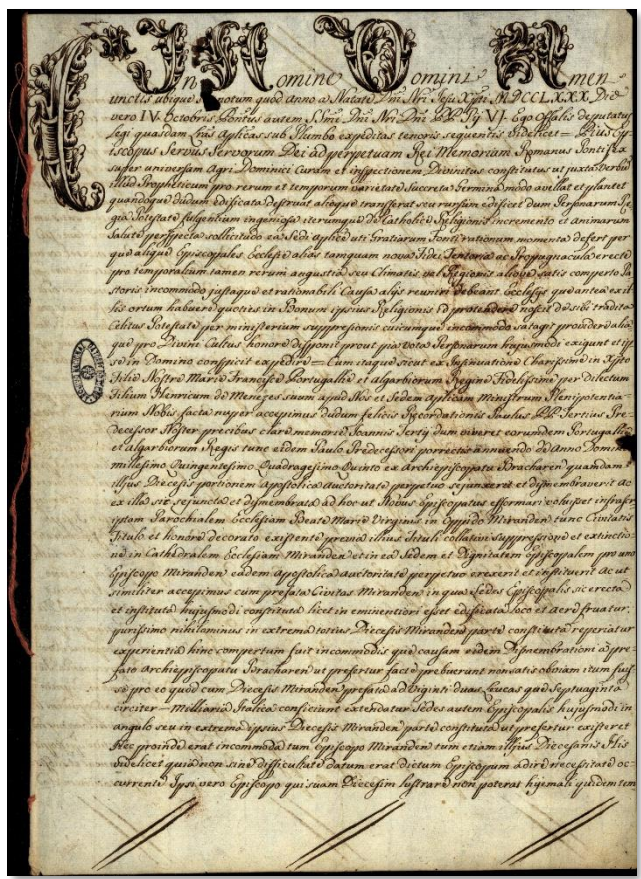 In Nomine Domini Amen
Cunctis ubique notum quod Anno a Natate Dni Nri Jesu Xpti MDCCLXXX Die
vero IV Octobris Pontus autem Ssmi Dni Nri Dni PP Pij VI Ego Offalis deputatus
legi quasdam Lras Aplicas sub Plumbo expeditas tenoris sequentis videlicet = Pius Epi
scopus Servus Servorum Dei ad perpetuam Rei Memoriam Romanus Pontifex
super universam Agri Dominici Curam et inspectionem Divinitus constitutus ut juxta Verbum
illud Propheticum pro rerum et temporum varietate succreta Germina modo avellat et plantet
quandoque dudum edificata destruat alioque transferat seu rursum edificet dum Personarum Re
gia Potestate fulgentium iterumque de Catholice Religionis incremento et Animarum
salute perspecta sollicitudo ea Sedi Aplice uti Gratiarum Fonti rationum momenta defert per
que alique Episcopales Ecclesie alias tamquam nova Fidei Tentoria ac Propugnacula erecte
pro temporalium tamen rerum angustia seu Climatis vel Regionis aliove satis comperto Pa
storis incommodo justaque et rationabili Causa alijs reuniri debeant Ecclesijs que antea ex il
lis ortum habuere quoties in Bonum ipsius Religionis id protendere noscit de sibi tradita
Celitus Potestate per ministerium suppressionis cuicumque incommodo satagit providere alia
que pro Divini Cultus honore disponit prout pia vota Personarum hujusmodi exigunt et ip
se in Domino conspicit expedire = Cum itaque sicut ex insinuatione Charissime in Xpto
Filie Nostre Marie Francisce Portugallie et Algarbiorum Regine Fidelissime per dilectum
Filium Henricum de Menezes suum apud Nos et Sedem Aplicam Ministrum Plenipotentia-
rium Nobis facta nuper accepimus dudum felicis Recordationis Paulus PP Tertius Pre
decessor Noster precibus clare memorie Joannis Tertij dum viveret eorumdem Portugallie
et Algarbiorum Regis tunc eidem Paulo Predecessori porrectis annuendo de Anno Domini
millesimo Quingentesimo Quadragesimo Quinto ex Archiepiscopatu Bracharen quamdam
illius Diecesis portionem Apostolica Auctoritate perpetuo sejunxerit et dismembraverit Ac
ex illa sic sejuncta et dismembrata ad hoc ut Novus Episcopatus efformari coluisset infrascri
iptam Parochialem Ecclesiam Beate Marie Virginis in Oppido Miranden tunc Civitatis
Titulo et honore decorato existente previa illius Tituli collativi suppressione et extinctio-
ne in Cathedralem Ecclesiam Miranden et in ea Sedem et Dignitatem Episcopalem pro uno
Episcopo Miranden eadem Apostolica Auctoritate perpetuo erexerit et instituerit Ac ut
similiter accepimus cum prefata Civitas Miranden in qua Sedes Episcopalis sic erecta
et instituta hujusmodi constituta licet in eminentiori esset edificata loco et Aere fruatur
purissimo nihilominus in extrema totius Diecesis Miranden parte constituta reperiatur
experientia hinc compertum fuit incommodis que causam eidem Dismembrationi a pre-
fato Archiepiscopatu Bracharen ut prefertur facte prebuerunt non satis obviam itum fuis
se pro eo quod cum Diecesis Miranden prefata ad viginti duas Leucas que septuaginta
circiter = Milliaria Italica conficiunt extendatur Sedes autem Episcopalis hujusmodi in
angulo seu in extrema ipsius Diecesis Miranden parte constituta ut prefertur existeret
Hec proinde erat incommoda tum Episcopo Miranden tum etiam illius Diecesanis Illis
videlicet quia non sine difficultate datum erat dictum Episcopum adire necessitate oc-
currente Ipsi vero Episcopo qui suam Diecesim lustrare non poterat hyemali quidem tem